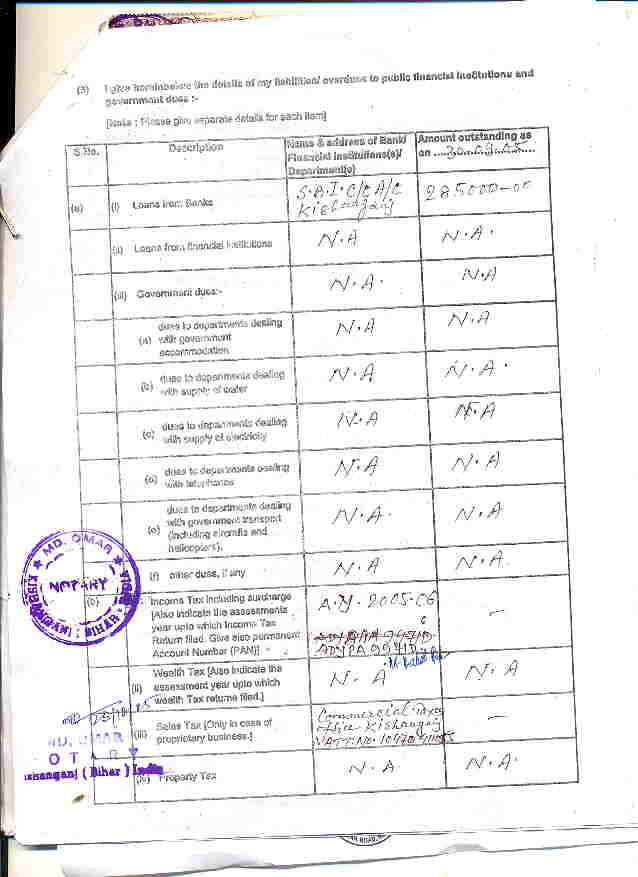 (3) I give hereinbelow the details of my liabilities/ overdues to public financial institutions and
government dues :-
[Note : Please give separate details for each item]
S.No. Description Name & address of Bank/ Amount outstanding as
Financial Institutions(s)/ on ....30.09.05.....
Department(s)
(a) (i) Loans from Banks S.B.I. C/C A/C 285000-00
Kishanganj
(ii) Loans from financial institutions N.A N.A.
(iii) Government dues:- N.A. N.A
dues to departments dealing
(a) with government N.A N.A
accommodation
(b) dues to departments dealing N.A N.A.
with supply of water
(c) dues to departments dealing N.A N.A
with supply of electricity
(d) dues to departments dealing N.A N.A
with telephones
dues to departments dealing
(e) with government transport N.A. N.A
(including aircrafts and
helicopters).
(f) other dues, if any N.A N.A.
MD. OMAR
NOTARY
KISHANGANJ : BIHAR
(b) Income Tax including surcharge A.Y. 2005-06 —
[Also indicate the assessments
year upto which Income Tax
Return filed. Give also permanent
Account Number (PAN)]
(ii) Wealth Tax [Also indicate the N.A N.A
assessment year upto which
wealth Tax returns filed.]
(iii) Sales Tax [Only in case of Commercial Taxes —
proprietary business.] office Kishanganj
MD. OMAR
O T A R Y
Kishanganj ( Bihar ) India
(iv) Property Tax N.A N.A.